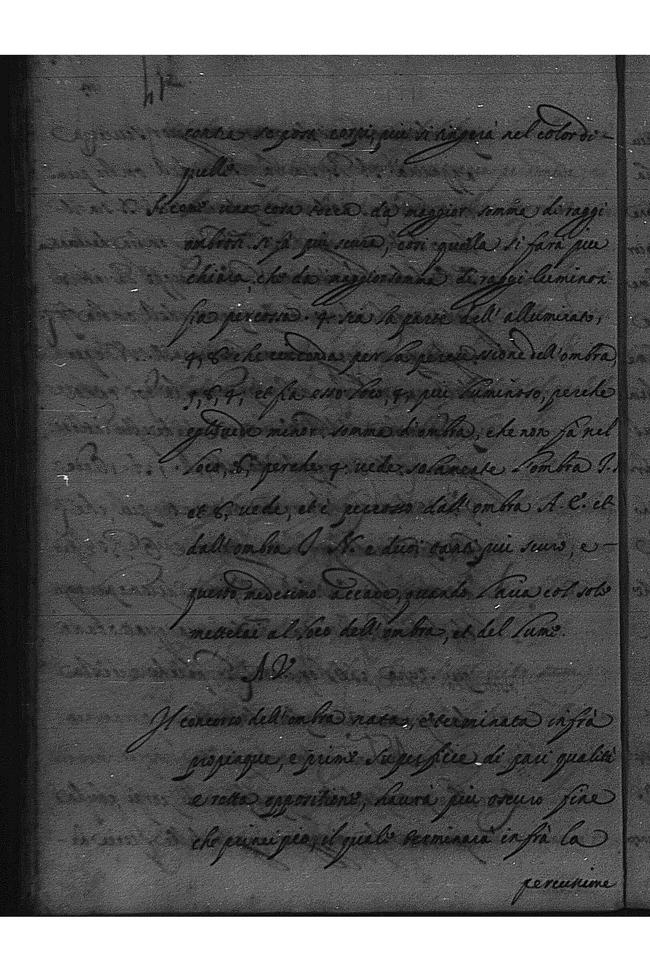 contra se posti corpi, piu si tingerà nel color di
quello.
Segue una cosa tocca da maggior somma di raggi
ombrosi si fà piu scura, cosi quella si farà piu
chiara, che da maggior somma di raggi luminosi
fia percossa. 4. sia la parte dell' allumirato,
4, 8 che circonda per la percussione dell' ombra,
8, 4, et fia esso loco, 4, piu luminoso, perche
vede minor somma d'ombra, che non fà nel
loco, 8, perche 4. vede solamente l'ombra I.
et 8, vede, et è percosso dall' ombra A. E. et
dall' ombra I N. e duoi tanti piu scuro, e
questo medesimo accade, quando l'aria col sole
metterai al loco dell' ombra, et del lume.
Il concorso dell' ombra nata, e terminata infrà
propinque, e prime superfice di pari qualità
e retta oppositione, haurà piu oscuro fine
che principio, il quale terminarà infrà la
percusione